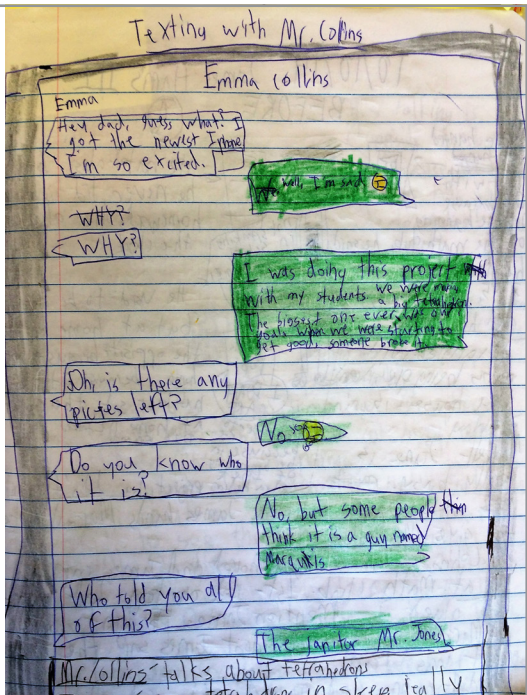 Texting with Mr. Collins
Emma Collins
Emma
Hey dad, guess what? I
got the newest Iphone
I'm so excited.
Well, I'm sad
WHY?
WHY?
I was doing this project
with my students we were
with my students a big tetrahedron.
The biggest one ever was our
goals when we were starting to
get good, someone broke it.
Oh, is there any
left?
No
Do you know who
it is?
No, but some people
think it is a guy named
Marqukis
Who told you all
of this?
The janitor Mr. Jones
Mr. Collins talks about tetrahedrons
tetrahedrons in sleep really